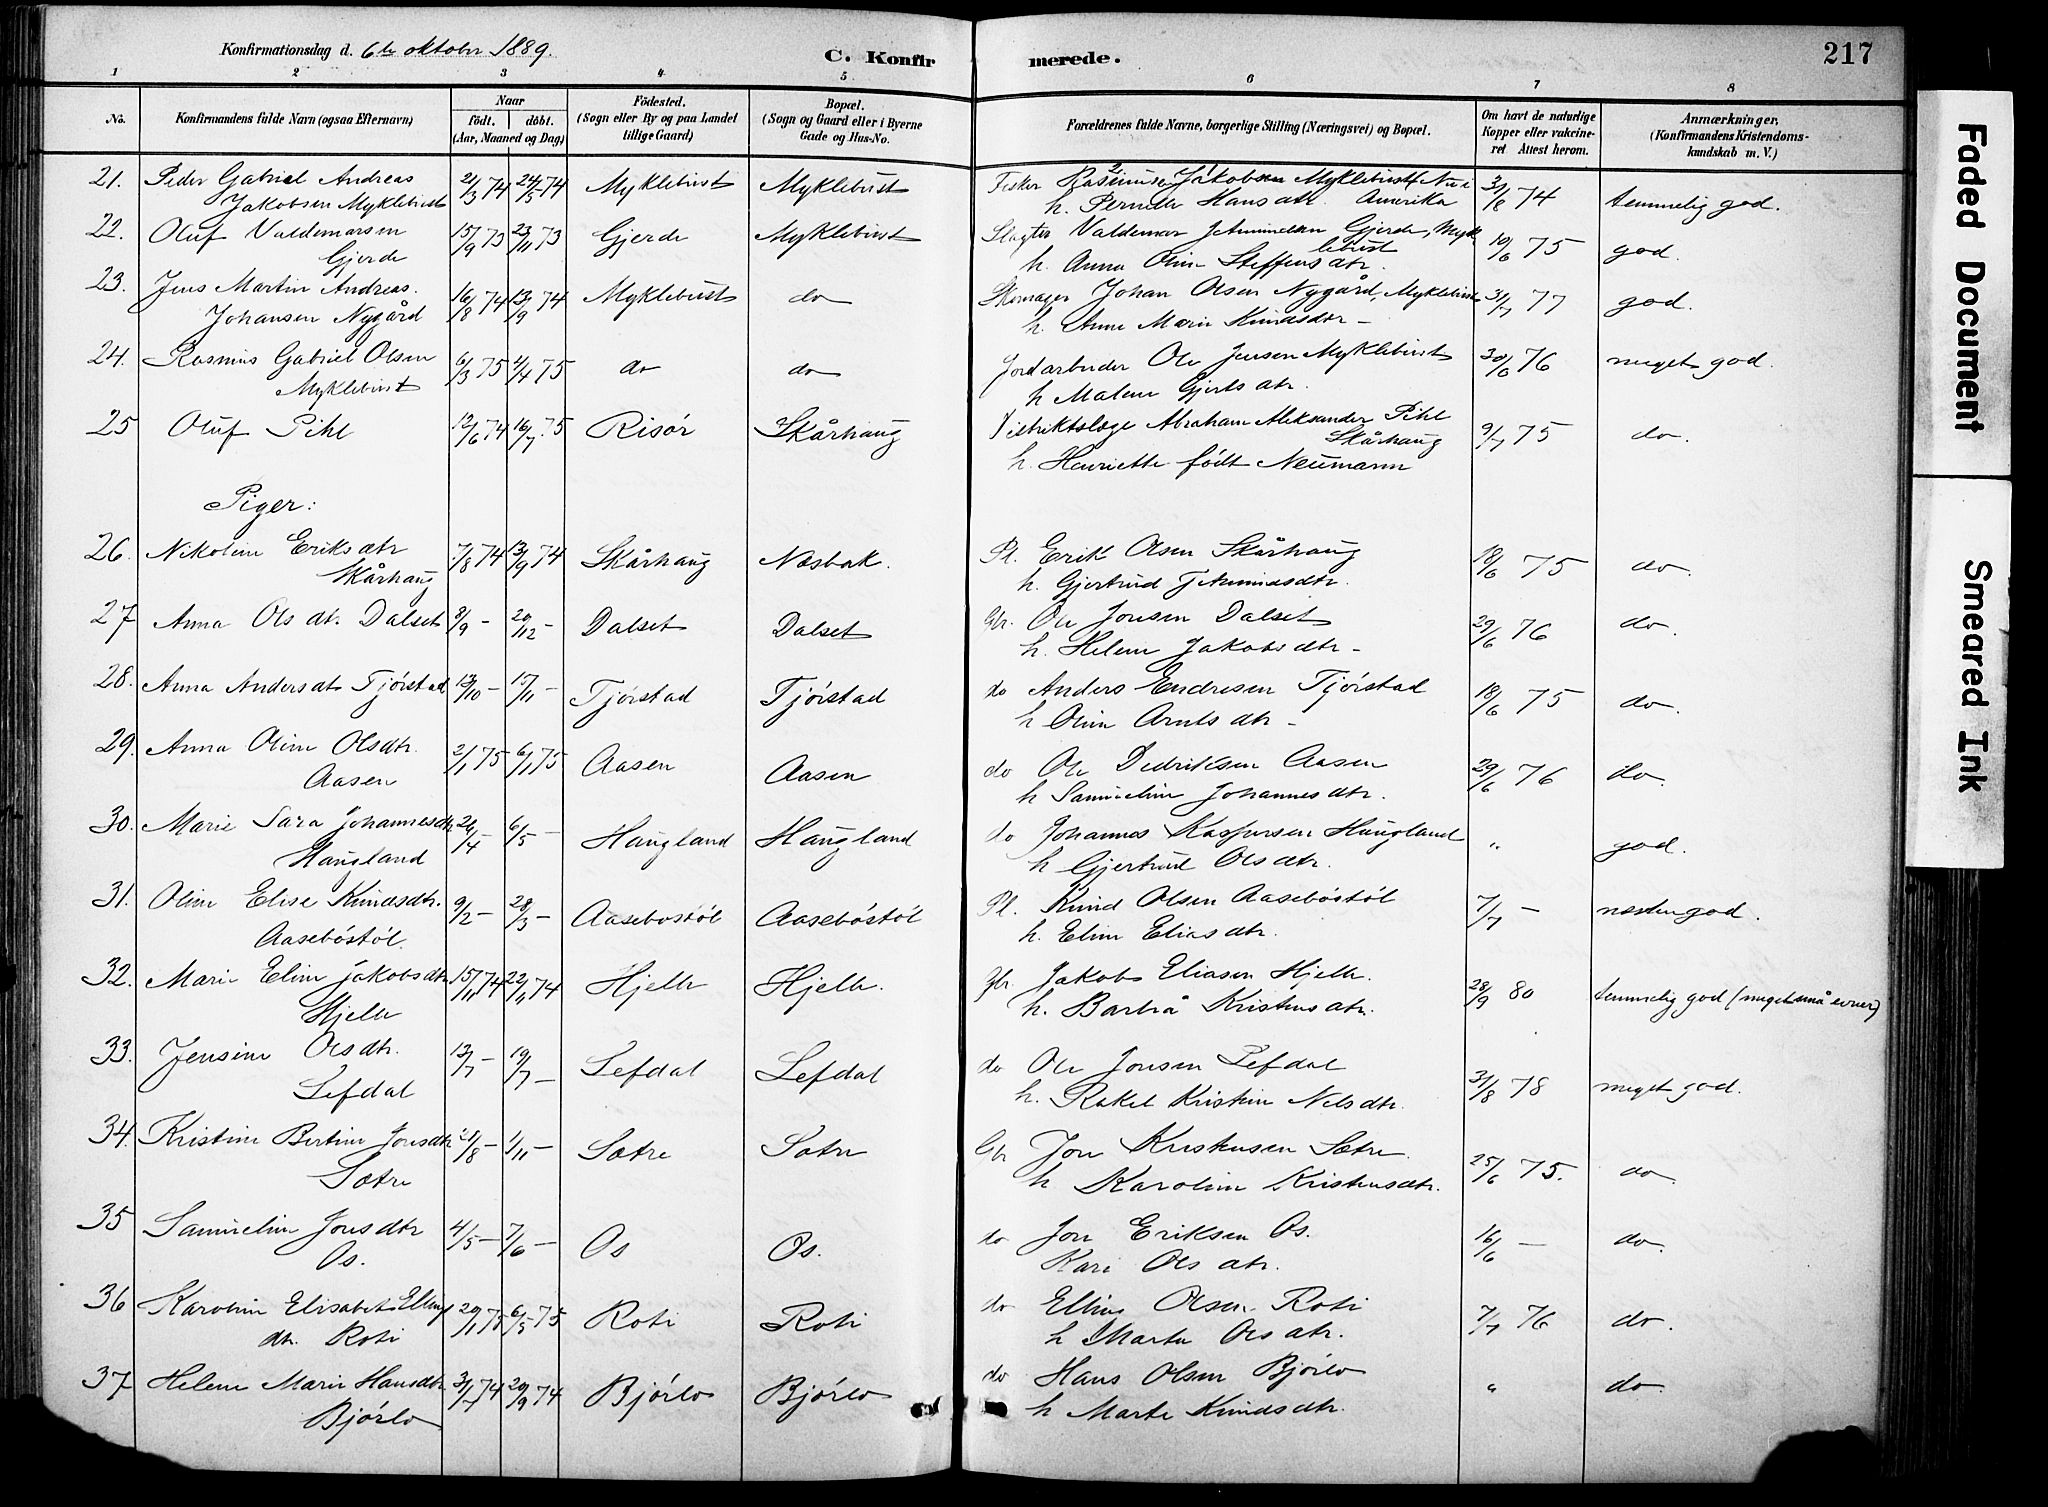 Konfirmationsdag d. 6te oktober 1889.
C. Konfirmerede.
217
1 2 3 4 5 6 7 8
No.
Konfirmandens fulde Navn (ogsaa Efternavn)
Naar
födt. döbt.
(Aar, Maaned og Dag)
Födested.
(Sogn eller By og paa Landet tillige Gaard)
Bopæl.
(Sogn og Gaard eller i Byerne Gade og Hus-No.
Forældrenes fulde Navne, borgerlige Stilling (Næringsvei) og Bopæl.
Om havt de naturlige Kopper eller vakcineret Attest herom.
Anmærkninger,
(Konfirmandens Kristendomskundskab m. V.)
21. Peder Gabriel Andreas Jakobsen Myklebust 21/3 74 24/5 74 Myklebust Myklebust Fisker Rasmus Jakobsen Myklebust Nu i Amerika h. Pernille Hansdtr. 31/8 74 temmelig god.
22. Oluf Valdemarsen Gjerde 15/9 73 23/11 73 Gjerde Myklebust Slagter Valdemar Gjerde, Myklebust h. Anna Oline Steffensdtr. 10/6 75 god.
23. Jens Martin Andreas Johansen Nygård 16/8 74 13/9 74 Myklebust do Skomager Johan Olsen Nygård, Myklebust h. Anne Marie Knudsdtr 31/7 77 god.
24. Rasmus Gabriel Olsen Myklebust 6/3 75 4/4 75 do do Jordarbeider Ole Jensen Myklebust h Malene Gjertsdtr. 30/6 76 meget god.
25 Oluf Pihl 12/6 74 16/7 75 Risör Skårhaug Distriktslæge Abraham Aleksander Pihl Skårhaug h. Henriette født Neumann 9/7 75 do.
Piger:
26. Nikoline Eriksdtr Skårhaug 7/8 74 13/9 74 Skårhaug Næsbak. Pl. Erik Olsen Skårhaug h. Gjertrud 18/6 75 do.
27 Anna Olsdtr. Dalset 8/9 - 20/12 - Dalset Dalset Gbr. Ole Jonsen Dalset h. Helene Jakobsdtr - 29/6 76 do.
28. Anna Andersdt Tjörstad 13/10 - 15/11 - Tjörstad Tjörstad do Anders Endresen Tjörstad h Oline Arntsdtr - 18/6 75 do.
29. Anna Oline Olsdtr. Aasen 2/1 75 6/1 75 Aasen Aasen do Ole Didriksen Aasen h Samueline Johannesdtr. 29/6 76 do.
30. Marie Sara Johannesdtr Haugland 24/4 - 6/5 - Haugland Haugland do Johannes Kaspersen Haugland h Gjertrud Olsdtr. " god.
31. Oline Elise Knudsdtr. Aaseböstöl. 9/2 - 28/3 - Aasebostöl Aaseböstöl Pl. Knud Olsen Aaseböstöl h. Eline Eliasdtr. 7/7 - næsten god.
32. Marie Eline Jakobsdtr Hjelle 15/11 74 22/11 74 Hjelle Hjelle. Gbr. Jakob Eliasen Hjelle. h. Barbrå Kristensdtr. 28/9 80 temmelig god (meget små evner)
33. Jensine Olsdtr. Lefdal 13/7 - 19/7 - Lefdal Lefdal do Ole Jonsen Lefdal h. Rakel Kristine Nilsdtr. 31/8 78 meget god.
34. Kristine Bertine Jonsdtr Sætre 21/8 - 1/11 - Sætre Sætre Gbr Jon Kristensen Sætre. h Karoline Kristensdtr. 25/6 75. do.
35 Samueline Jonsdtr Os. 4/5 - 7/6 - Os Os. do Jon Eriksen Os. Kari Olsdtr. 16/6 - do.
36 Karoline Elisabet Ellingsdtr. Roti 20/1 75 6/5 75 Roti Roti do Elling Olsen Roti h Marte Olsdtr. 7/7 76 do.
37 Helene Marie Hansdtr Bjórlo 31/7 74 20/9 74 Bjórlo Bjórlo do Hans Olsen Bjórlo h Marte Knudsdtr. " do.
Faded Document
Smeared Ink